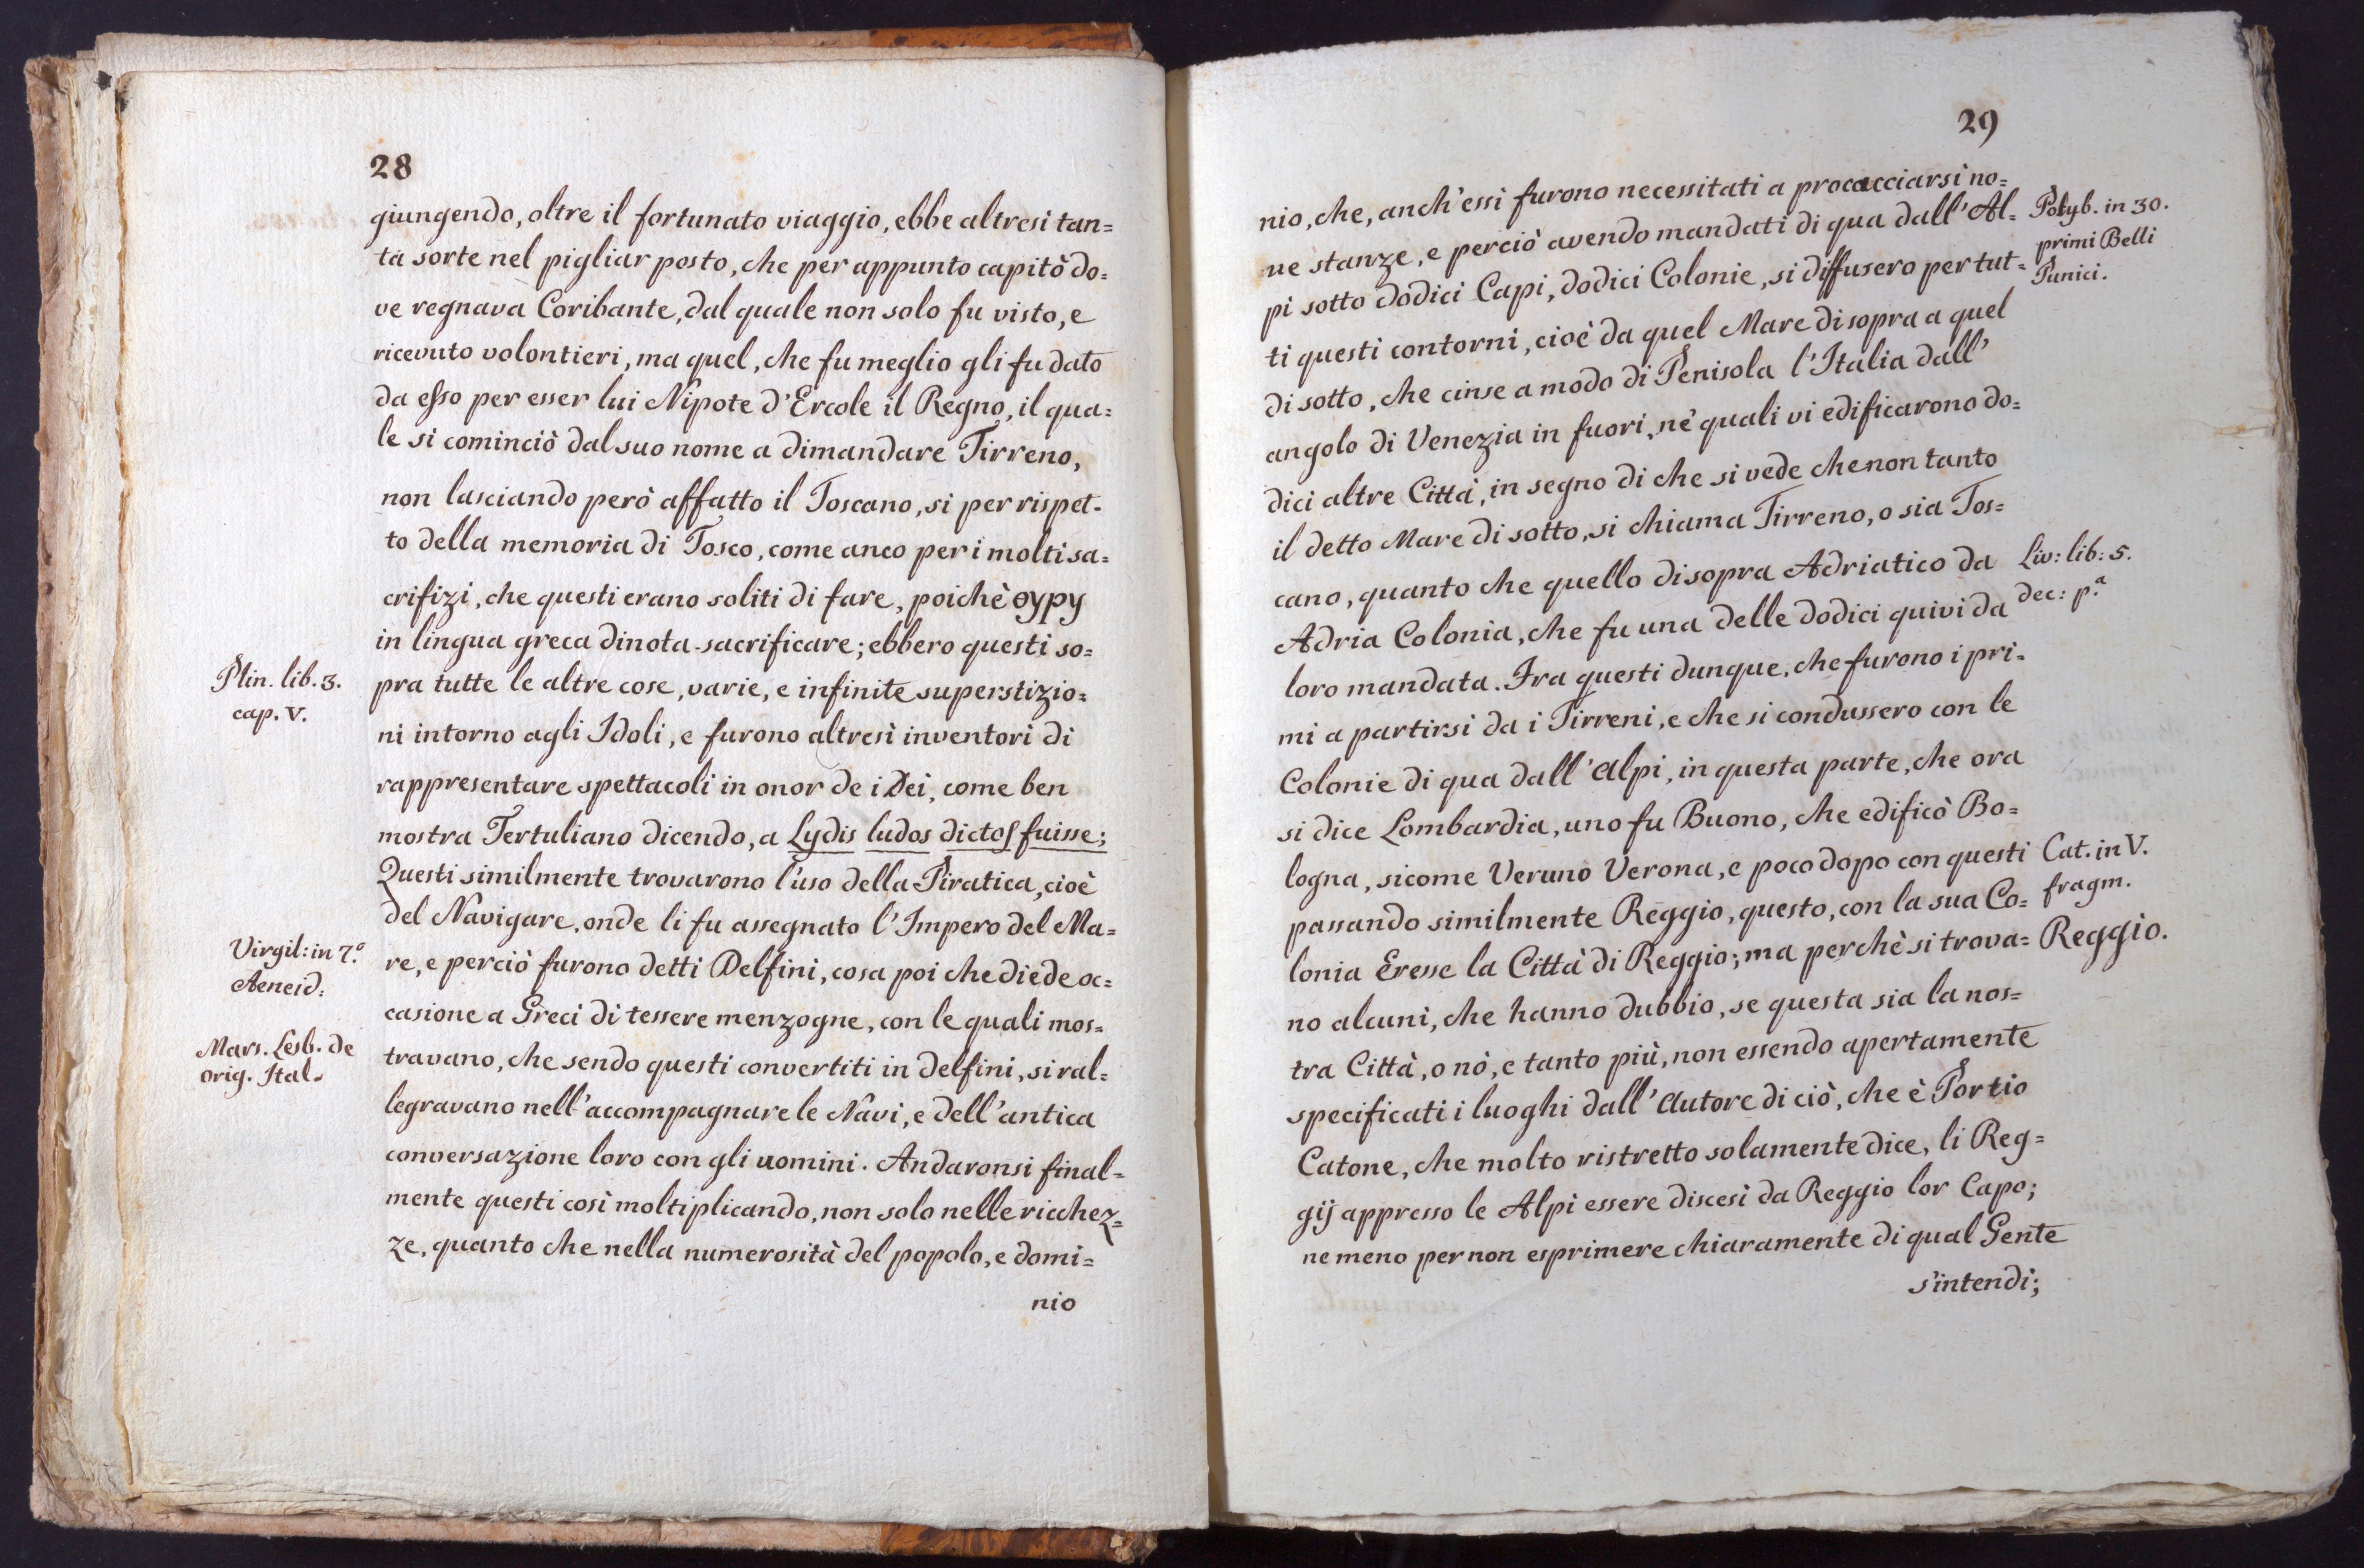 28
giungendo, oltre il fortunato viaggio, ebbe altresì tan=
ta sorte nel pigliar posto, che per appunto capitò do=
ve regnava Coribante, dal quale non solo fu visto, e
ricevuto volontieri, ma quel, che fu meglio gli fu dato
da esso per esser lui Nipote d'Ercole il Regno, il qua=
le si cominciò dal suo nome a dimandare Tirreno,
non lasciando però affatto il Toscano, si per rispet-
to della memoria di Tosco, come anco per i molti sa=
crifizi, che questi erano soliti di fare, poichè θyρy
in lingua greca dinota sacrificare; ebbero questi so=
Plin. lib. 3.
cap. V.
pra tutte le altre cose, varie, e infinite superstizio=
ni intorno agli Idoli, e furono altresì inventori di
rappresentare spettacoli in onor de i Dei, come ben
mostra Tertuliano dicendo, a Lydis ludos dictos fuisse;
Questi similmente trovarono l'uso della Piratica, cioè
del Navigare, onde li fu assegnato l'Impero del Ma=
Virgil: in 7.º
Aeneid:
re, e perciò furono detti Delfini, cosa poi che diede oc=
casione a Greci di tessere menzogne, con le quali mos=
Mars. Lesb. de
orig. Ital.
travano, che sendo questi convertiti in delfini, si ral=
legravano nell'accompagnare le Navi, e dell'antica
conversazione loro con gli uomini. Andaronsi final=
mente questi così moltiplicando, non solo nelle ricchez=
ze, quanto che nella numerosità del popolo, e domi=
nio
29
nio, che, anch'essi furono necessitati a procacciarsi no=
ve stanze, e perciò avendo mandati di qua dall'Al=
Polyb. in 30.
primi Belli
Punici.
pi sotto dodici Capi, dodici Colonie, si diffusero per tut=
ti questi contorni, cioè da quel Mare di sopra a quel
di sotto, che cinse a modo di Penisola l'Italia dall'
angolo di Venezia in fuori, ne' quali vi edificarono do=
dici altre Città, in segno di che si vede che non tanto
il detto Mare di sotto, si chiama Tirreno, o sia Tos=
cano, quanto che quello di sopra Adriatico da
Liv: lib: 5.
dec: p.ª
Adria Colonia, che fu una delle dodici quivi da
loro mandata. Fra questi dunque, che furono i pri=
mi a partirsi da i Tirreni, e che si condussero con le
Colonie di qua dall'Alpi, in questa parte, che ora
si dice Lombardia, uno fu Buono, che edificò Bo=
logna, sicome Veruno Verona, e poco dopo con questi
Cat. in V.
fragm.
passando similmente Reggio, questo, con la sua Co=
lonia Eresse la Città di Reggio; ma perchè si trova=
Reggio.
no alcuni, che hanno dubbio, se questa sia la nos=
tra Città, o nò, e tanto più, non essendo apertamente
specificati i luoghi dall'Autore di ciò, che è Portio
Catone, che molto ristretto solamente dice, li Reg=
gij appresso le Alpi essere discesi da Reggio lor Capo;
ne meno per non esprimere chiaramente di qual Gente
s'intendi;